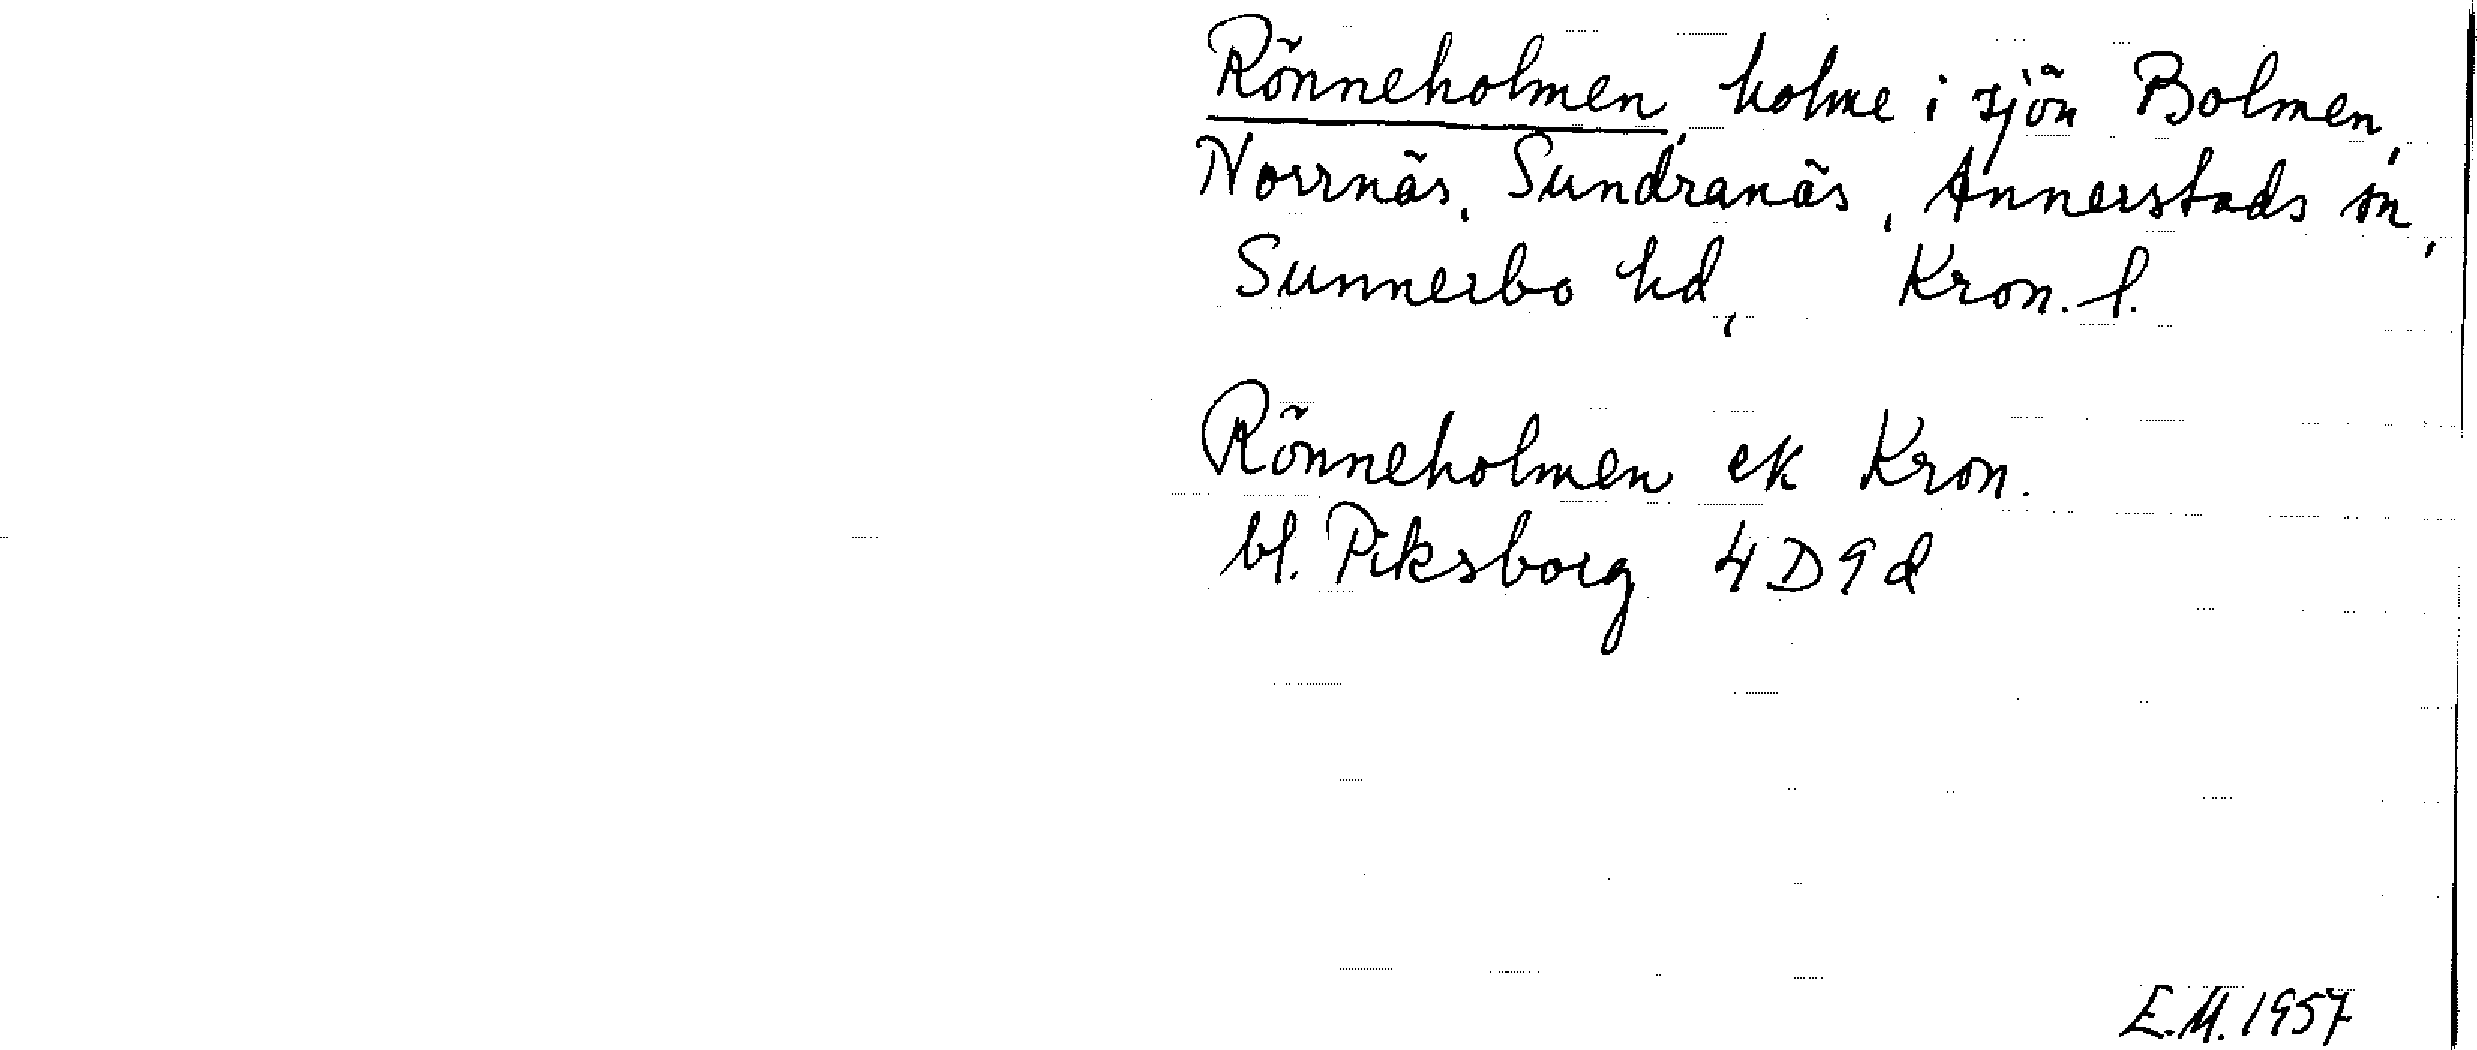 Rönneholmen, holme i sjön Bolmen,
Norrnäs, Sundranäs, Annerstads sn,
Sunnerbo hd, Kron. l.
Rönneholmen ek Kron.
bl. Piksborg 4D9d
E.M. 1957